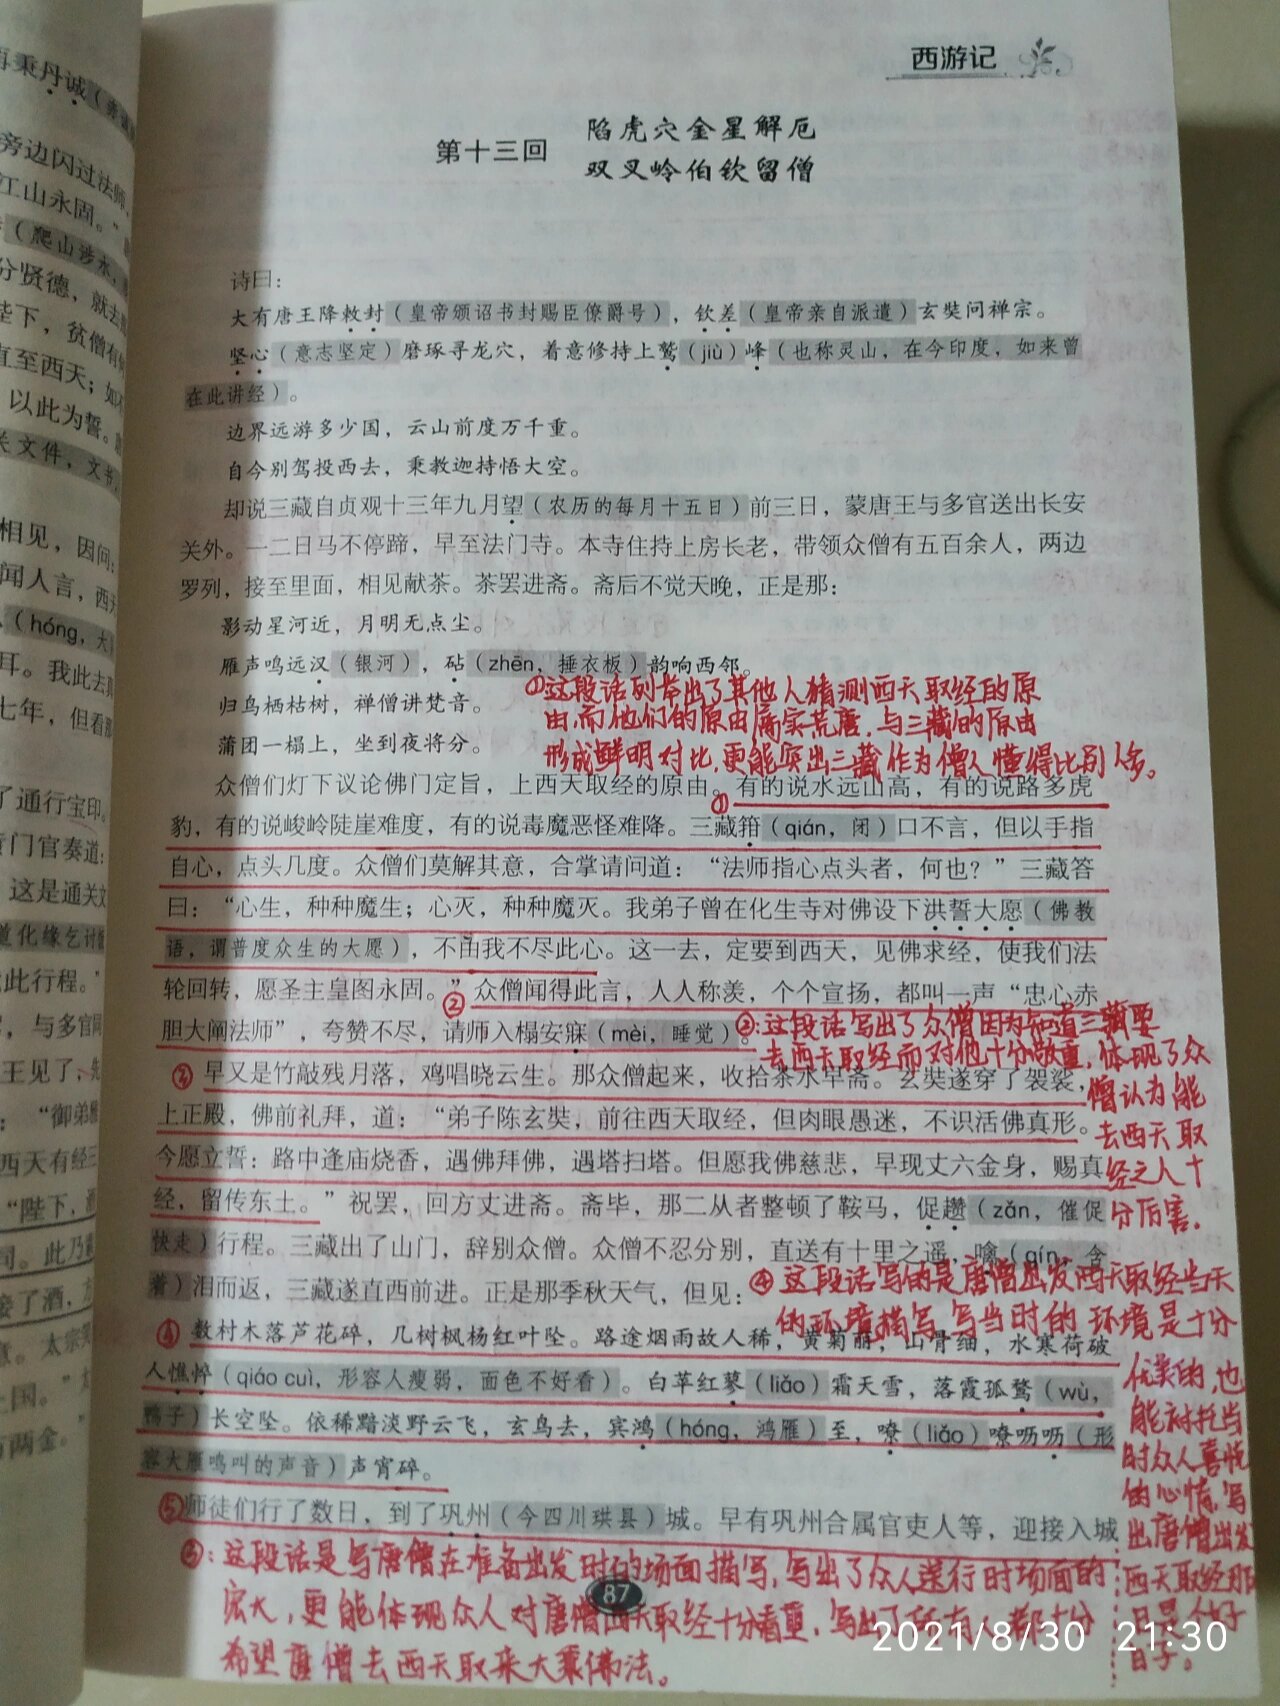 西游记
第十三回
陷虎穴金星解厄
双叉岭伯钦留僧
诗曰：
大有唐王降敕封（皇帝颁诏书封赐臣僚爵号），钦差（皇帝亲自派遣）玄奘问禅宗。
坚心（意志坚定）磨琢寻龙穴，着意修持上鹫（jiù）峰（也称灵山，在今印度，如来曾
在此讲经）。
边界远游多少国，云山前度万千重。
自今别驾投西去，秉教迦持悟大空。
却说三藏自贞观十三年九月望（农历的每月十五日）前三日，蒙唐王与多官送出长安
关外。一二日马不停蹄，早至法门寺。本寺住持上房长老，带领众僧有五百余人，两边
罗列，接至里面，相见献茶。茶罢进斋。斋后不觉天晚，正是那：
影动星河近，月明无点尘。
雁声鸣远汉（银河），砧（zhēn，捶衣板）韵响西邻。
归鸟栖枯树，禅僧讲梵音。
蒲团一榻上，坐到夜将分。
①这段话列举出了其他人猜测西天取经的原
由，而他们的原由属实荒唐，与三藏的原由
形成鲜明对比，更能突出三藏作为僧人懂得比别人多。
众僧们灯下议论佛门定旨，上西天取经的原由。①有的说水远山高，有的说路多虎
豹，有的说峻岭陡崖难度，有的说毒魔恶怪难降。三藏箝（qián，闭）口不言，但以手指
自心，点头几度。众僧们莫解其意，合掌请问道：“法师指心点头者，何也？”三藏答
曰：“心生，种种魔生；心灭，种种魔灭。我弟子曾在化生寺对佛设下洪誓大愿（佛教
语，谓普度众生的大愿），不由我不尽此心。这一去，定要到西天，见佛求经，使我们法
轮回转，愿圣主皇图永固。”②众僧闻得此言，人人称羡，个个宣扬，都叫一声“忠心赤
胆大阐法师”，夸赞不尽，请师入榻安寐（mèi，睡觉）。
②：这段话写出了众僧因为知道三藏要
去西天取经而对他十分敬重，体现了众
僧认为能
去西天取
经之人十
分厉害。
③早又是竹敲残月落，鸡唱晓云生。那众僧起来，收拾茶水早斋。玄奘遂穿了袈裟，
上正殿，佛前礼拜，道：“弟子陈玄奘，前往西天取经，但肉眼愚迷，不识活佛真形。
今愿立誓：路中逢庙烧香，遇佛拜佛，遇塔扫塔。但愿我佛慈悲，早现丈六金身，赐真
经，留传东土。”祝罢，回方丈进斋。斋毕，那二从者整顿了鞍马，促趱（zǎn，催促
快走）行程。三藏出了山门，辞别众僧。众僧不忍分别，直送有十里之遥，噙（qín，含
着）泪而返，三藏遂直西前进。正是那季秋天气，但见：
④这段话写的是唐僧出发西天取经当天
的环境描写，写当时的环境是十分
优美的，也
能衬托当
时众人喜悦
的心情，写
出唐僧出发
西天取经那
日是个好
日子。
④数村木落芦花碎，几树枫杨红叶坠。路途烟雨故人稀，黄菊丽，山骨细，水寒荷破
人憔悴（qiáo cuì，形容人瘦弱，面色不好看）。白苹红蓼（liǎo）霜天雪，落霞孤鹜（wù，
鸭子）长空坠。依稀黯淡野云飞，玄鸟去，宾鸿（hóng，鸿雁）至，嘹（liǎo）嘹呖呖（形
容大雁鸣叫的声音）声宵碎。
⑤师徒们行了数日，到了巩州（今四川珙县）城。早有巩州合属官吏人等，迎接入城
③：这段话是写唐僧在准备出发时的场面描写，写出了众人送行时场面的
宏大，更能体现众人对唐僧西天取经十分看重，写出了所有人都十分
希望唐僧去西天取来大乘佛法。
87
2021/8/30 21:30
再秉丹诚
旁边闪过法师，
江山永固。”
（爬山涉水，
分贤德，就去
陛下，贫僧有何
直至西天；如不
以此为誓。
关文件，文书，
相见，因问：
闻人言，西天
（hóng，大
耳。我此去真
七年，但看那
了通行宝印。
门官奏道：
这是通关文
道化缘乞讨
此行程。”
，与多官同
王见了，先
：“御弟雅
西天有经三
“陛下，
司。此乃
接了酒，方
意。太宗
上国。”
有两金。”